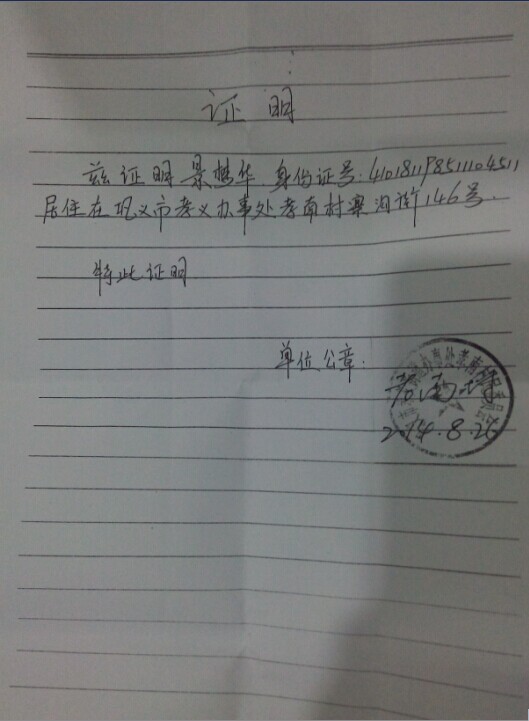 证明
兹证明景楼华.身份证号:410181198511104511
居住在巩义市孝义办事处孝南村寨沟街146号.
特此证明
单位公章:
孝南村
2014.8.26